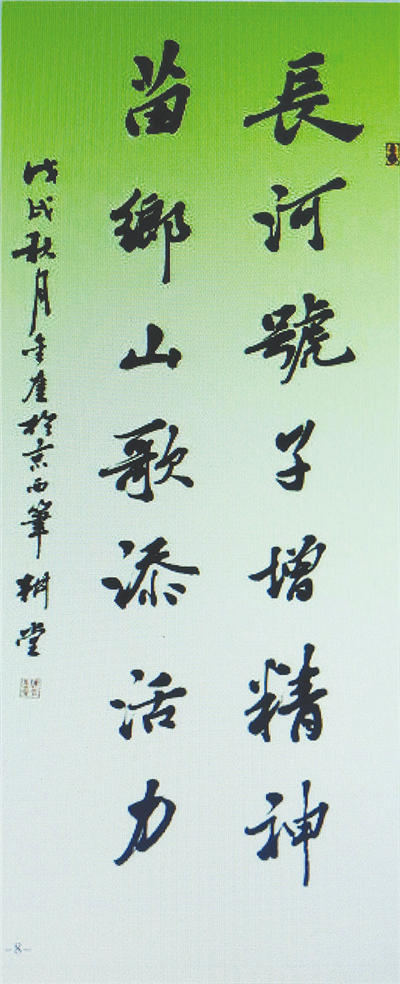 長河號子增精神
苗鄉山歌添活力
戊戌秋月
於京西筆耕堂
-8-